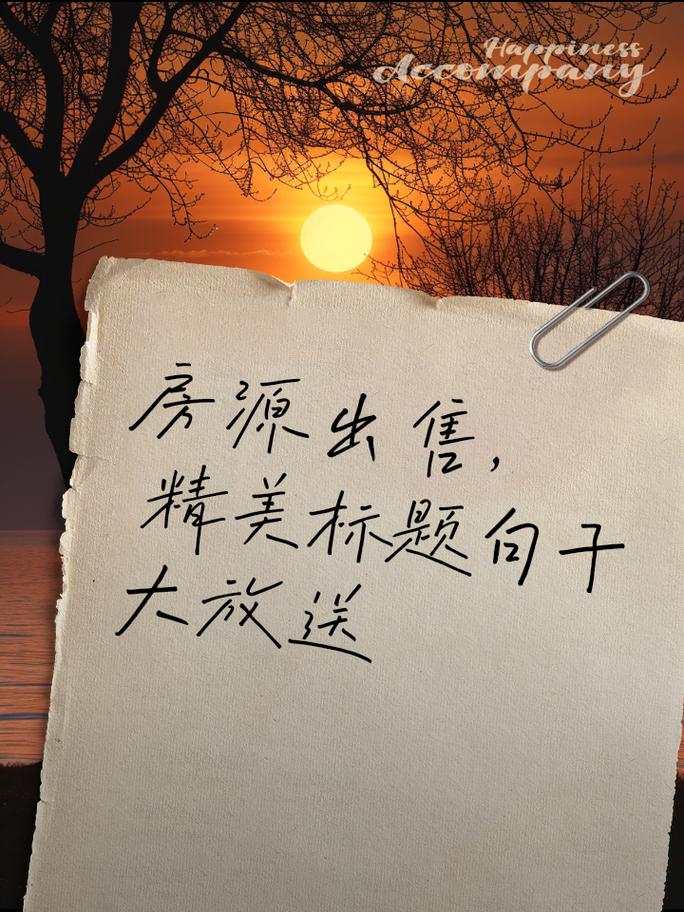 Happiness
Accompany
房源出售，
精美标题句子
大放送